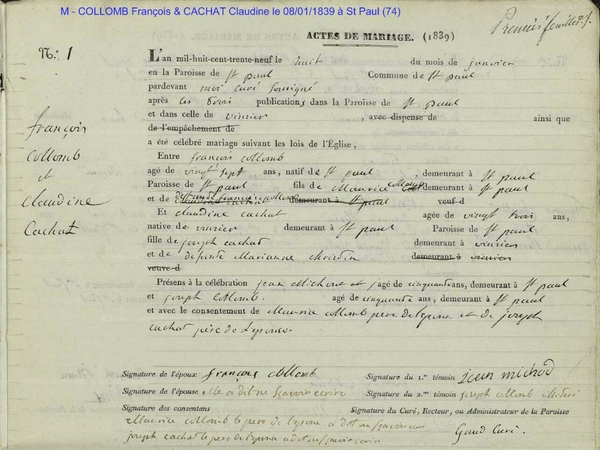 M - COLLOMB François & CACHAT Claudine le 08/01/1839 à St Paul (74)
Premier feuillet
ACTES DE MARIAGE. (1839)
N.° 1
L'an mil-huit-cent-trente-neuf le huit du mois de janvier
en la Paroisse de St paul Commune de St paul
pardevant moi curé soussigné
après les trois publications dans la Paroisse de St paul
et dans celle de vinzier , avec dispense de ainsi que
de l'empêchement de
a été célébré mariage suivant les lois de l'Église,
françois
collomb
et
claudine
Cachat
Entre françois collomb
agé de vingt sept ans, natif de St paul , demeurant à St paul
Paroisse de St paul fils de Maurice collomb demeurant à St paul
et de demeurant à St paul veuf d
Et claudine cachat agée de vingt trois ans,
native de vinzier demeurant à St paul Paroisse de St paul
fille de joseph cachat demeurant à vinzier
et de défunte Marianne demeurant à vinzier
veuve d
Présens à la célébration jean Michoud et agé de cinquante ans, demeurant à St paul
et joseph Collomb agé de cinquante ans, demeurant à St paul
et avec le consentement de Maurice Collomb père de l'époux et de joseph
cachat père de l'épouse
Signature de l'époux françois collomb
Signature du 1.er témoin jean michod
Signature de l'épouse elle a dit ne scavoir écrire
Signature du 2.me témoin joseph collomb
Signature des consentans
Signature du Curé, Recteur, ou Administrateur de la Paroisse
Maurice collomb le père de l'époux a dit ne
Gaud Curé.
joseph cachat le père de l'épouse a dit ne scavoir écrire